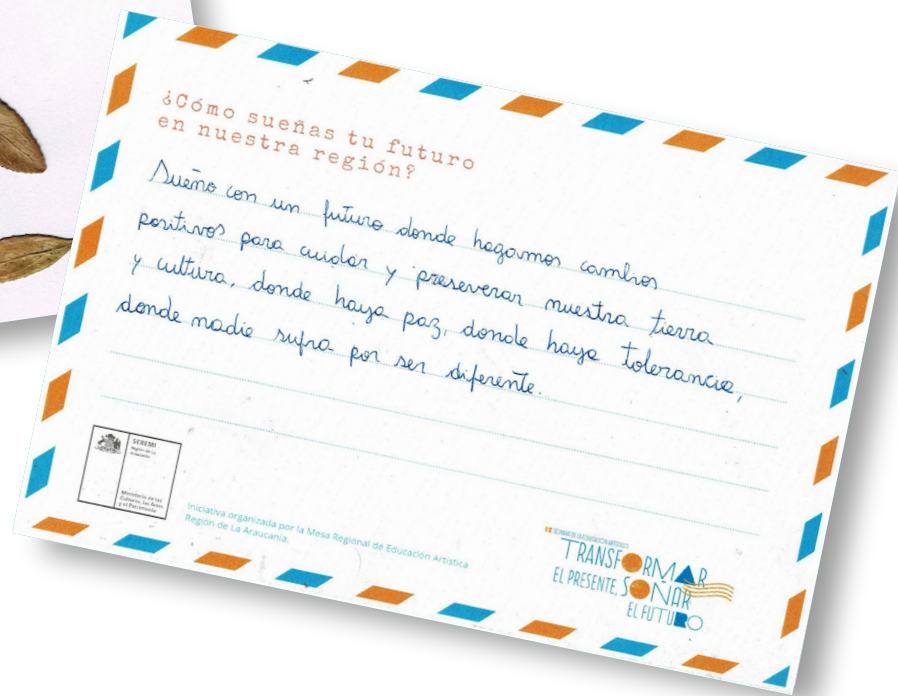 ¿Cómo sueñas tu futuro
en nuestra región?
Sueño con un futuro donde hagamos cambios
positivos para cuidar y preseverar nuestra tierra
y cultura, donde haya paz, donde haya tolerancia,
donde nadie sufra por ser diferente.
SEREMI
Región de La
Araucanía
Ministerio de las
Culturas, las Artes
y el Patrimonio
Iniciativa organizada por la Mesa Regional de Educación Artística
Región de La Araucanía.
SEMANA DE LA EDUCACIÓN ARTÍSTICA
TRANSFORMAR
EL PRESENTE, SOÑAR
EL FUTURO